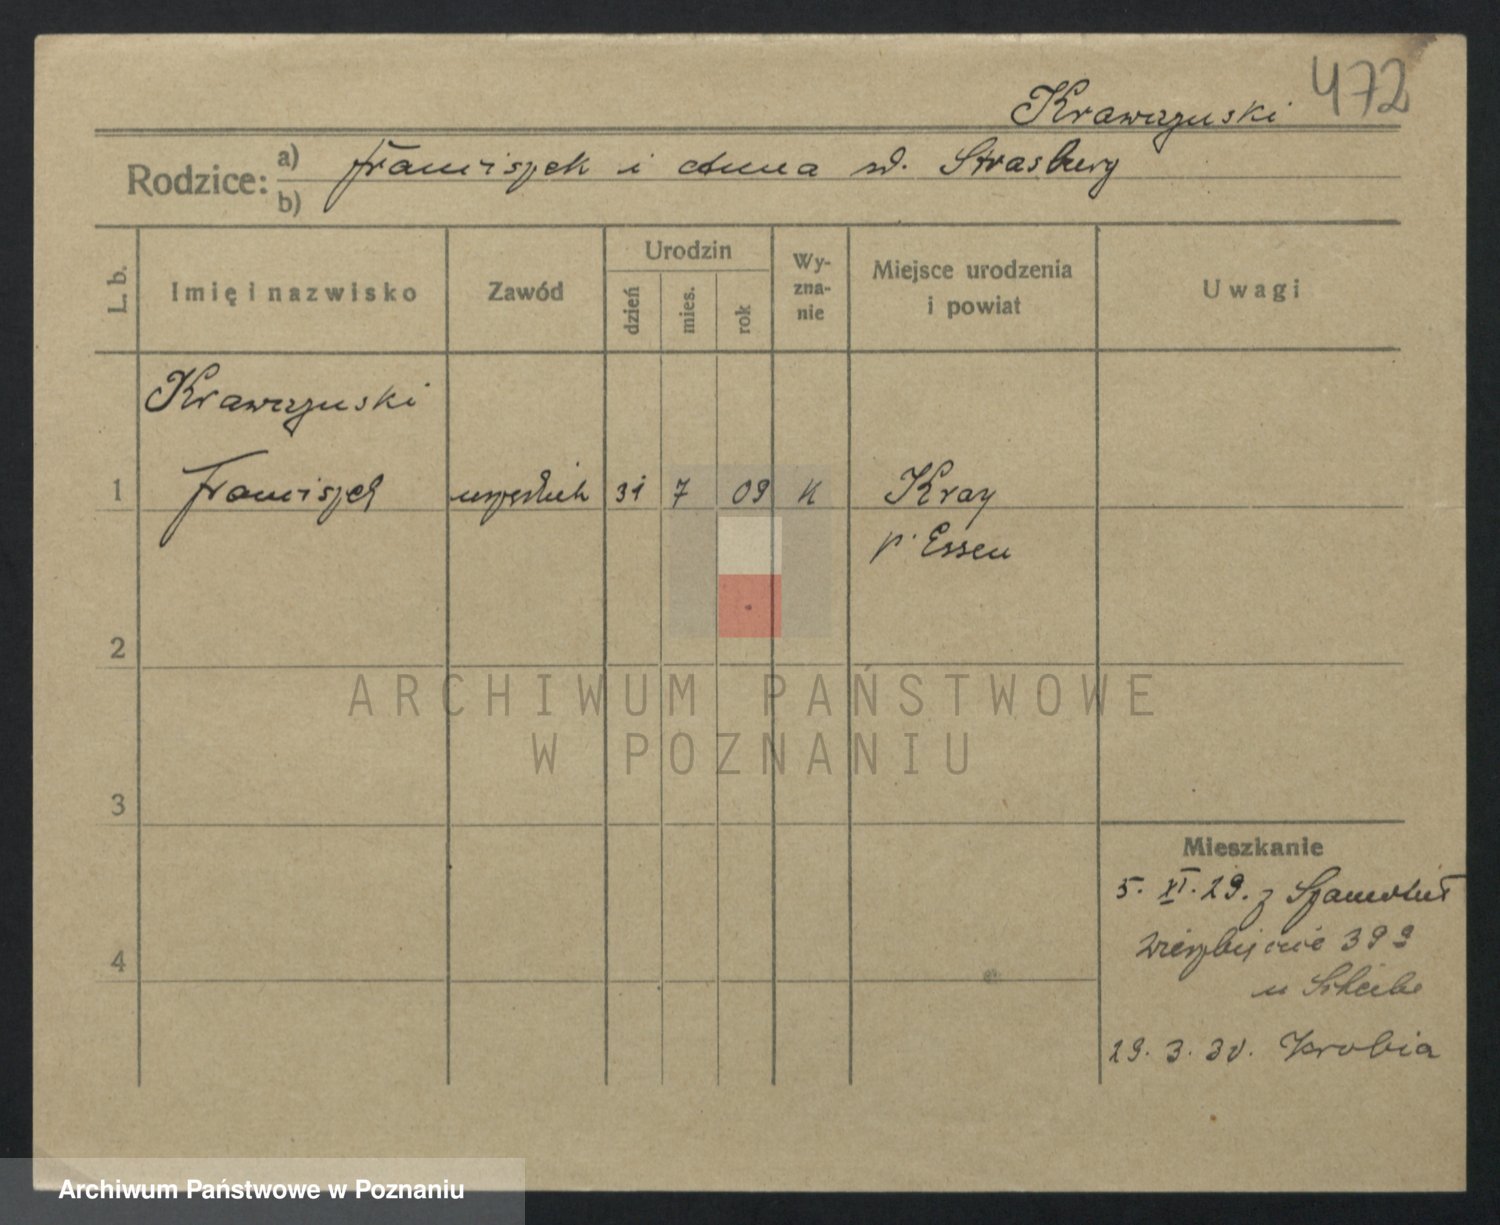 472
Krawczyński
Rodzice: a) Franciszek i Anna Strasburg
b)
L. b.
Imię i nazwisko
Zawód
Urodzin
dzień
mies.
rok
Wy-
zna-
nie
Miejsce urodzenia
i powiat
Uwagi
Krawczyński
1 Franciszek 31 7 09 K Kray
p. Essen
2
ARCHIWUM PAŃSTWOWE
W POZNANIU
3
Mieszkanie
5. XI. 29. z Szamotuł
4
29. 3. 30. Krobia
Archiwum Państwowe w Poznaniu